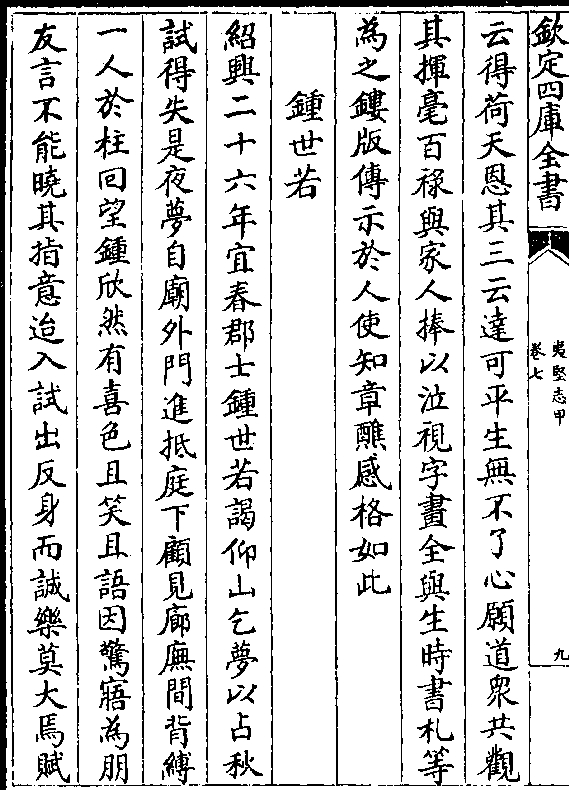 欽定四庫全書
夷堅志甲
卷七
九
云得荷天恩其三云達可平生無不了心願道衆共觀
其揮毫百祿與家人捧以泣視字畫全與生時書札等
為之鏤版傳示於人使知章醮感格如此
鍾世若
紹興二十六年宜春郡士鍾世若謁仰山乞夢以占秋
試得失是夜夢自廟外門進抵庭下顧見廊廡間背縛
一人於柱回望鍾欣然有喜色且笑且語因驚寤為朋
友言不能曉其指意迨入試出反身而誠樂莫大焉賦